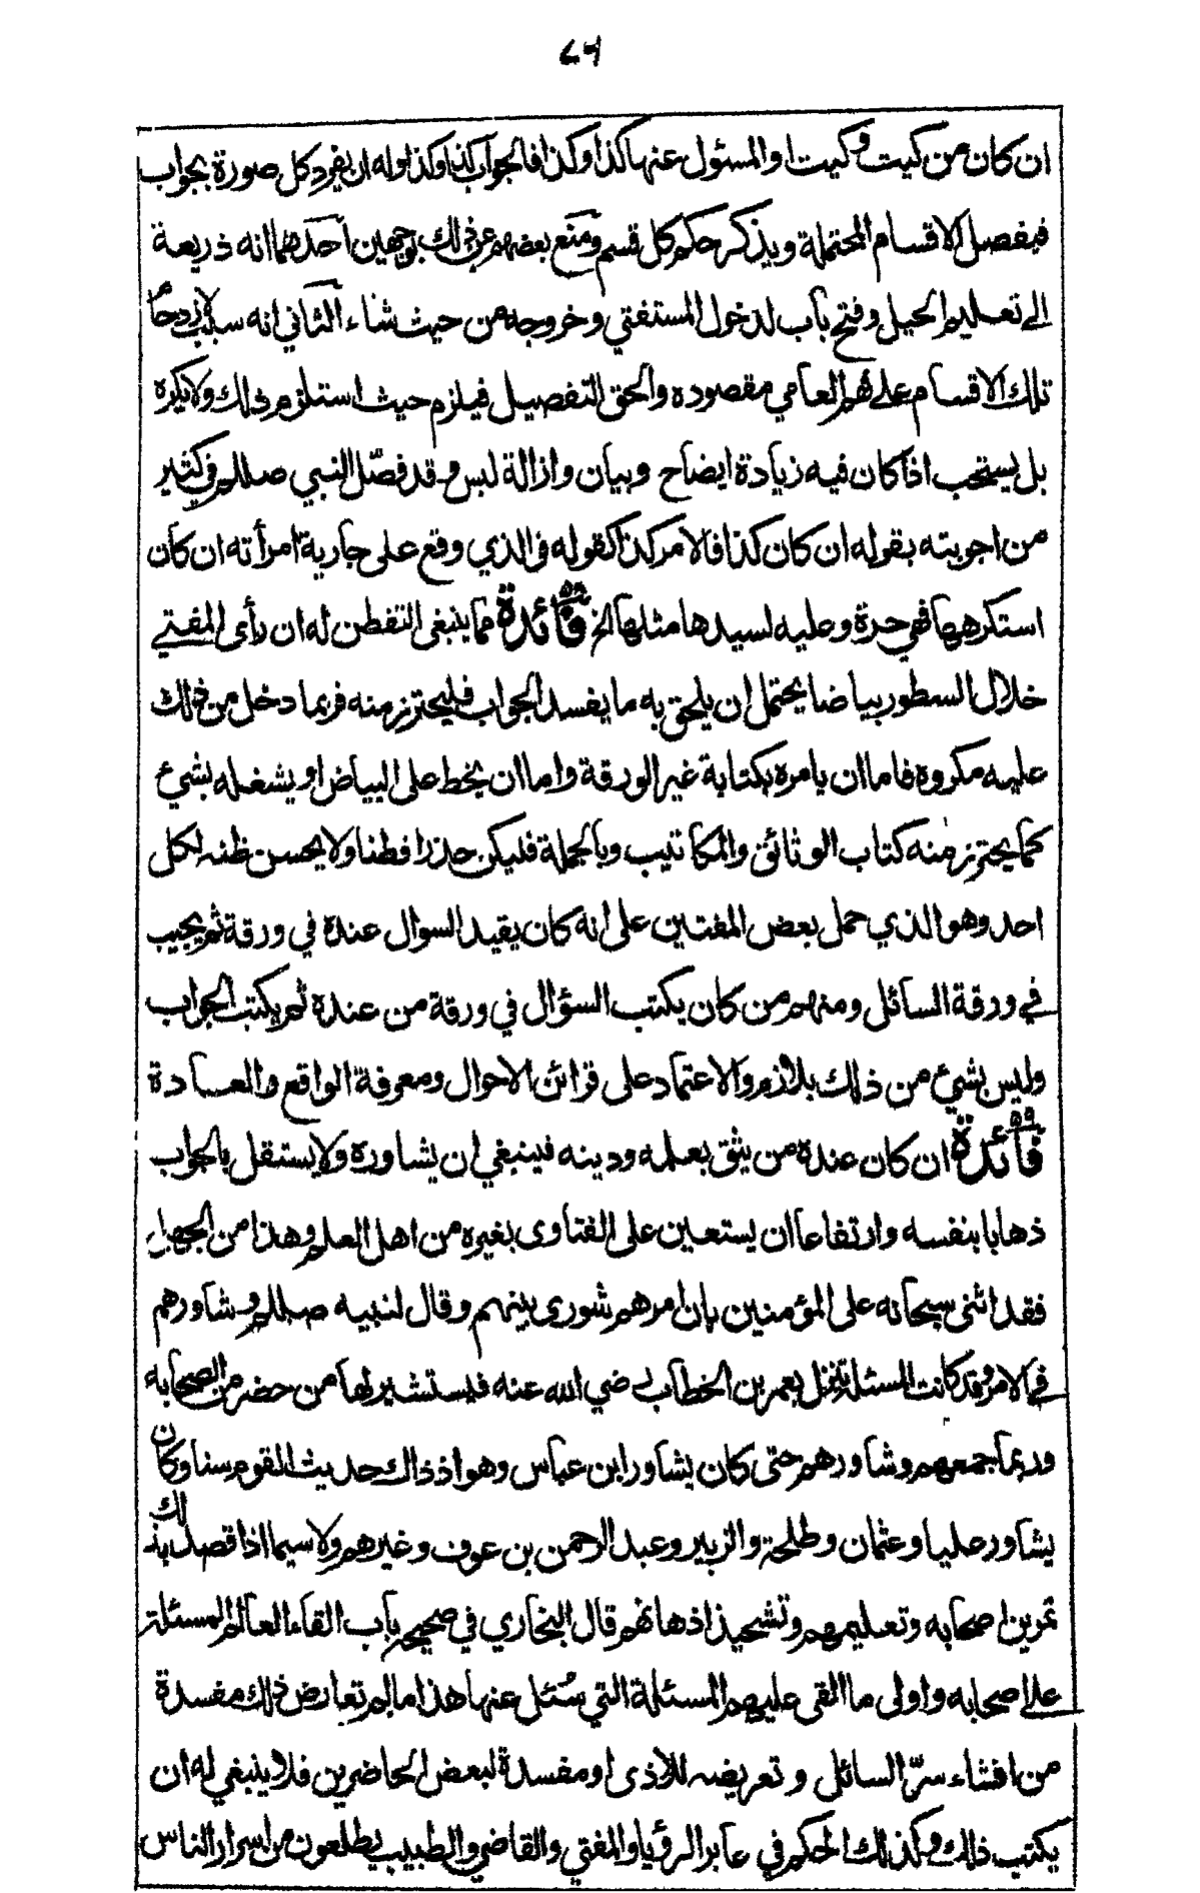 ٦٩
ان كان من كيت وكيت او المسئول عنها كذا وكذا فالجواب كذا وكذا وله ان يفرد كل صورة بجواب
فيفصل الاقسام المحتملة ويذكر حكم كل قسم ومنع بعضهم عن ذلك بوجهين احدهما انه ذريعة
الى تعليم الحيل وفتح باب لدخول المستفتي وخروجه من حيث شاء الثاني انه سبب لازدحام
تلك الاقسام على فهم العامي مقصوده والحق التفصيل فيلزم حيث استلزم ذلك ولا يكره
بل يستحب اذا كان فيه زيادة ايضاح وبيان وازالة لبس وقد فصّل النبي صللم في كثير
من اجوبته بقوله ان كان كذا فالامر كذا كقوله في الذي وقع على جارية امرأته ان كان
استكرهها فهي حرة وعليه لسيدها مثلها الخ فائدة ٥٨ مما ينبغي التفطن له ان رأى المفتي
خلال السطور بياضا يحتمل ان يلحق به ما يفسد الجواب فليحترز منه فربما دخل من ذلك
عليه مكروه فاما ان يامره بكتابة غير الورقة واما ان يخط على البياض او يشغله بشيء
كما يحترز منه كتاب الوثائق والمكاتيب وبالجملة فليكن حذرا فطنا ولا يحسن ظنه لكل
احد وهو الذي حمل بعض المفتين على انه كان يقيد السوال عنده في ورقة ثم يجيب
في ورقة السائل ومنهم من كان يكتب السؤال في ورقة من عنده ثم يكتب الجواب
وليس بشيء من ذلك بلازم والاعتماد على قرائن الاحوال ومعرفة الواقع والعادة
فائدة ٥٩ ان كان عنده من يثق بعلمه ودينه فينبغي ان يشاوره ولا يستقل بالجواب
ذهابا بنفسه وارتفاعا ان يستعين على الفتاوى بغيره من اهل العلم وهذا من الجهل
فقد اثنى سبحانه على المؤمنين بان امرهم شورى بينهم وقال لنبيه صللم وشاورهم
في الامر وقد كانت المسئلة تنزل بعمر بن الخطاب رضي الله عنه فيستشير لها من حضر من الصحابه
وربما جمعهم وشاورهم حتى كان يشاور ابن عباس وهو اذ ذاك حديث القوم سنا وكان
يشاور عليا وعثمان وطلحة والزبير وعبد الرحمن بن عوف وغيرهم ولا سيما اذا قصد بذلك
تمرين اصحابه وتعليمهم وتشحيذ اذهانهم قال البخاري في صحيحه باب القاء العالم المسئلة
على اصحابه واولى ما القى عليهم المسئلة التي سُئل عنها هذا ما لم تعارض ذلك مفسدة
من افشاء سرّ السائل وتعريضه للاذى او مفسدة لبعض الحاضرين فلا ينبغي له ان
يكتب ذلك وكذلك الحكم في عابر الرؤيا والمفتي والقاضي والطبيب يطلعون من اسرار الناس